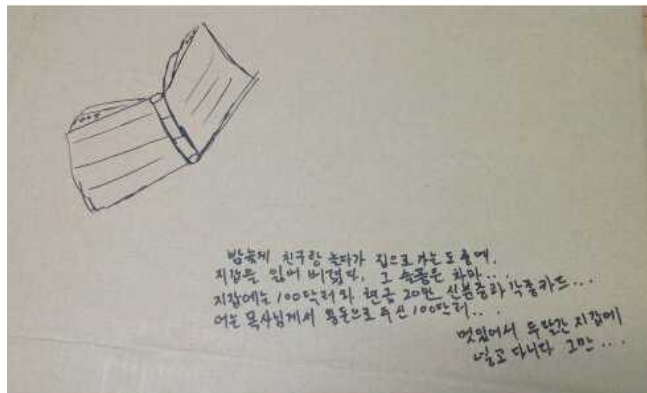 밤늦게 친구랑 놀다가 집으로 가는 도중에.
지갑을 잃어 버렸다. 그 슬픔은 차마...
지갑에는 100달러와 현금 20만 신분증과 각종카드...
아는 목사님께서 용돈으로 주신 100달러...
멋있어서 두달간 지갑에
넣고 다니다 그만....